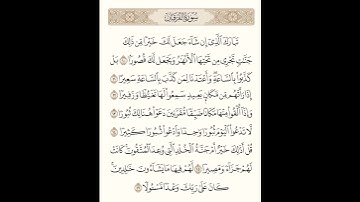 سُورَةُ الفُرْقَان
تَبَارَكَ ٱلَّذِىٓ إِن شَآءَ جَعَلَ لَكَ خَيْرًا مِّن ذَٰلِكَ
جَنَّٰتٍ تَجْرِى مِن تَحْتِهَا ٱلْأَنْهَٰرُ وَيَجْعَل لَّكَ قُصُورًۢا ١٠ بَلْ
كَذَّبُوا۟ بِٱلسَّاعَةِ وَأَعْتَدْنَا لِمَن كَذَّبَ بِٱلسَّاعَةِ سَعِيرًا ١١
إِذَا رَأَتْهُم مِّن مَّكَانٍۭ بَعِيدٍ سَمِعُوا۟ لَهَا تَغَيُّظًا وَزَفِيرًا ١٢
وَإِذَآ أُلْقُوا۟ مِنْهَا مَكَانًا ضَيِّقًا مُّقَرَّنِينَ دَعَوْا۟ هُنَالِكَ ثُبُورًا ١٣
لَّا تَدْعُوا۟ ٱلْيَوْمَ ثُبُورًا وَٰحِدًا وَٱدْعُوا۟ ثُبُورًا كَثِيرًا ١٤
قُلْ أَذَٰلِكَ خَيْرٌ أَمْ جَنَّةُ ٱلْخُلْدِ ٱلَّتِى وُعِدَ ٱلْمُتَّقُونَ كَانَتْ
لَهُمْ جَزَآءً وَمَصِيرًا ١٥ لَّهُمْ فِيهَا مَا يَشَآءُونَ خَٰلِدِينَ
كَانَ عَلَىٰ رَبِّكَ وَعْدًا مَّسْـُٔولًا ١٦